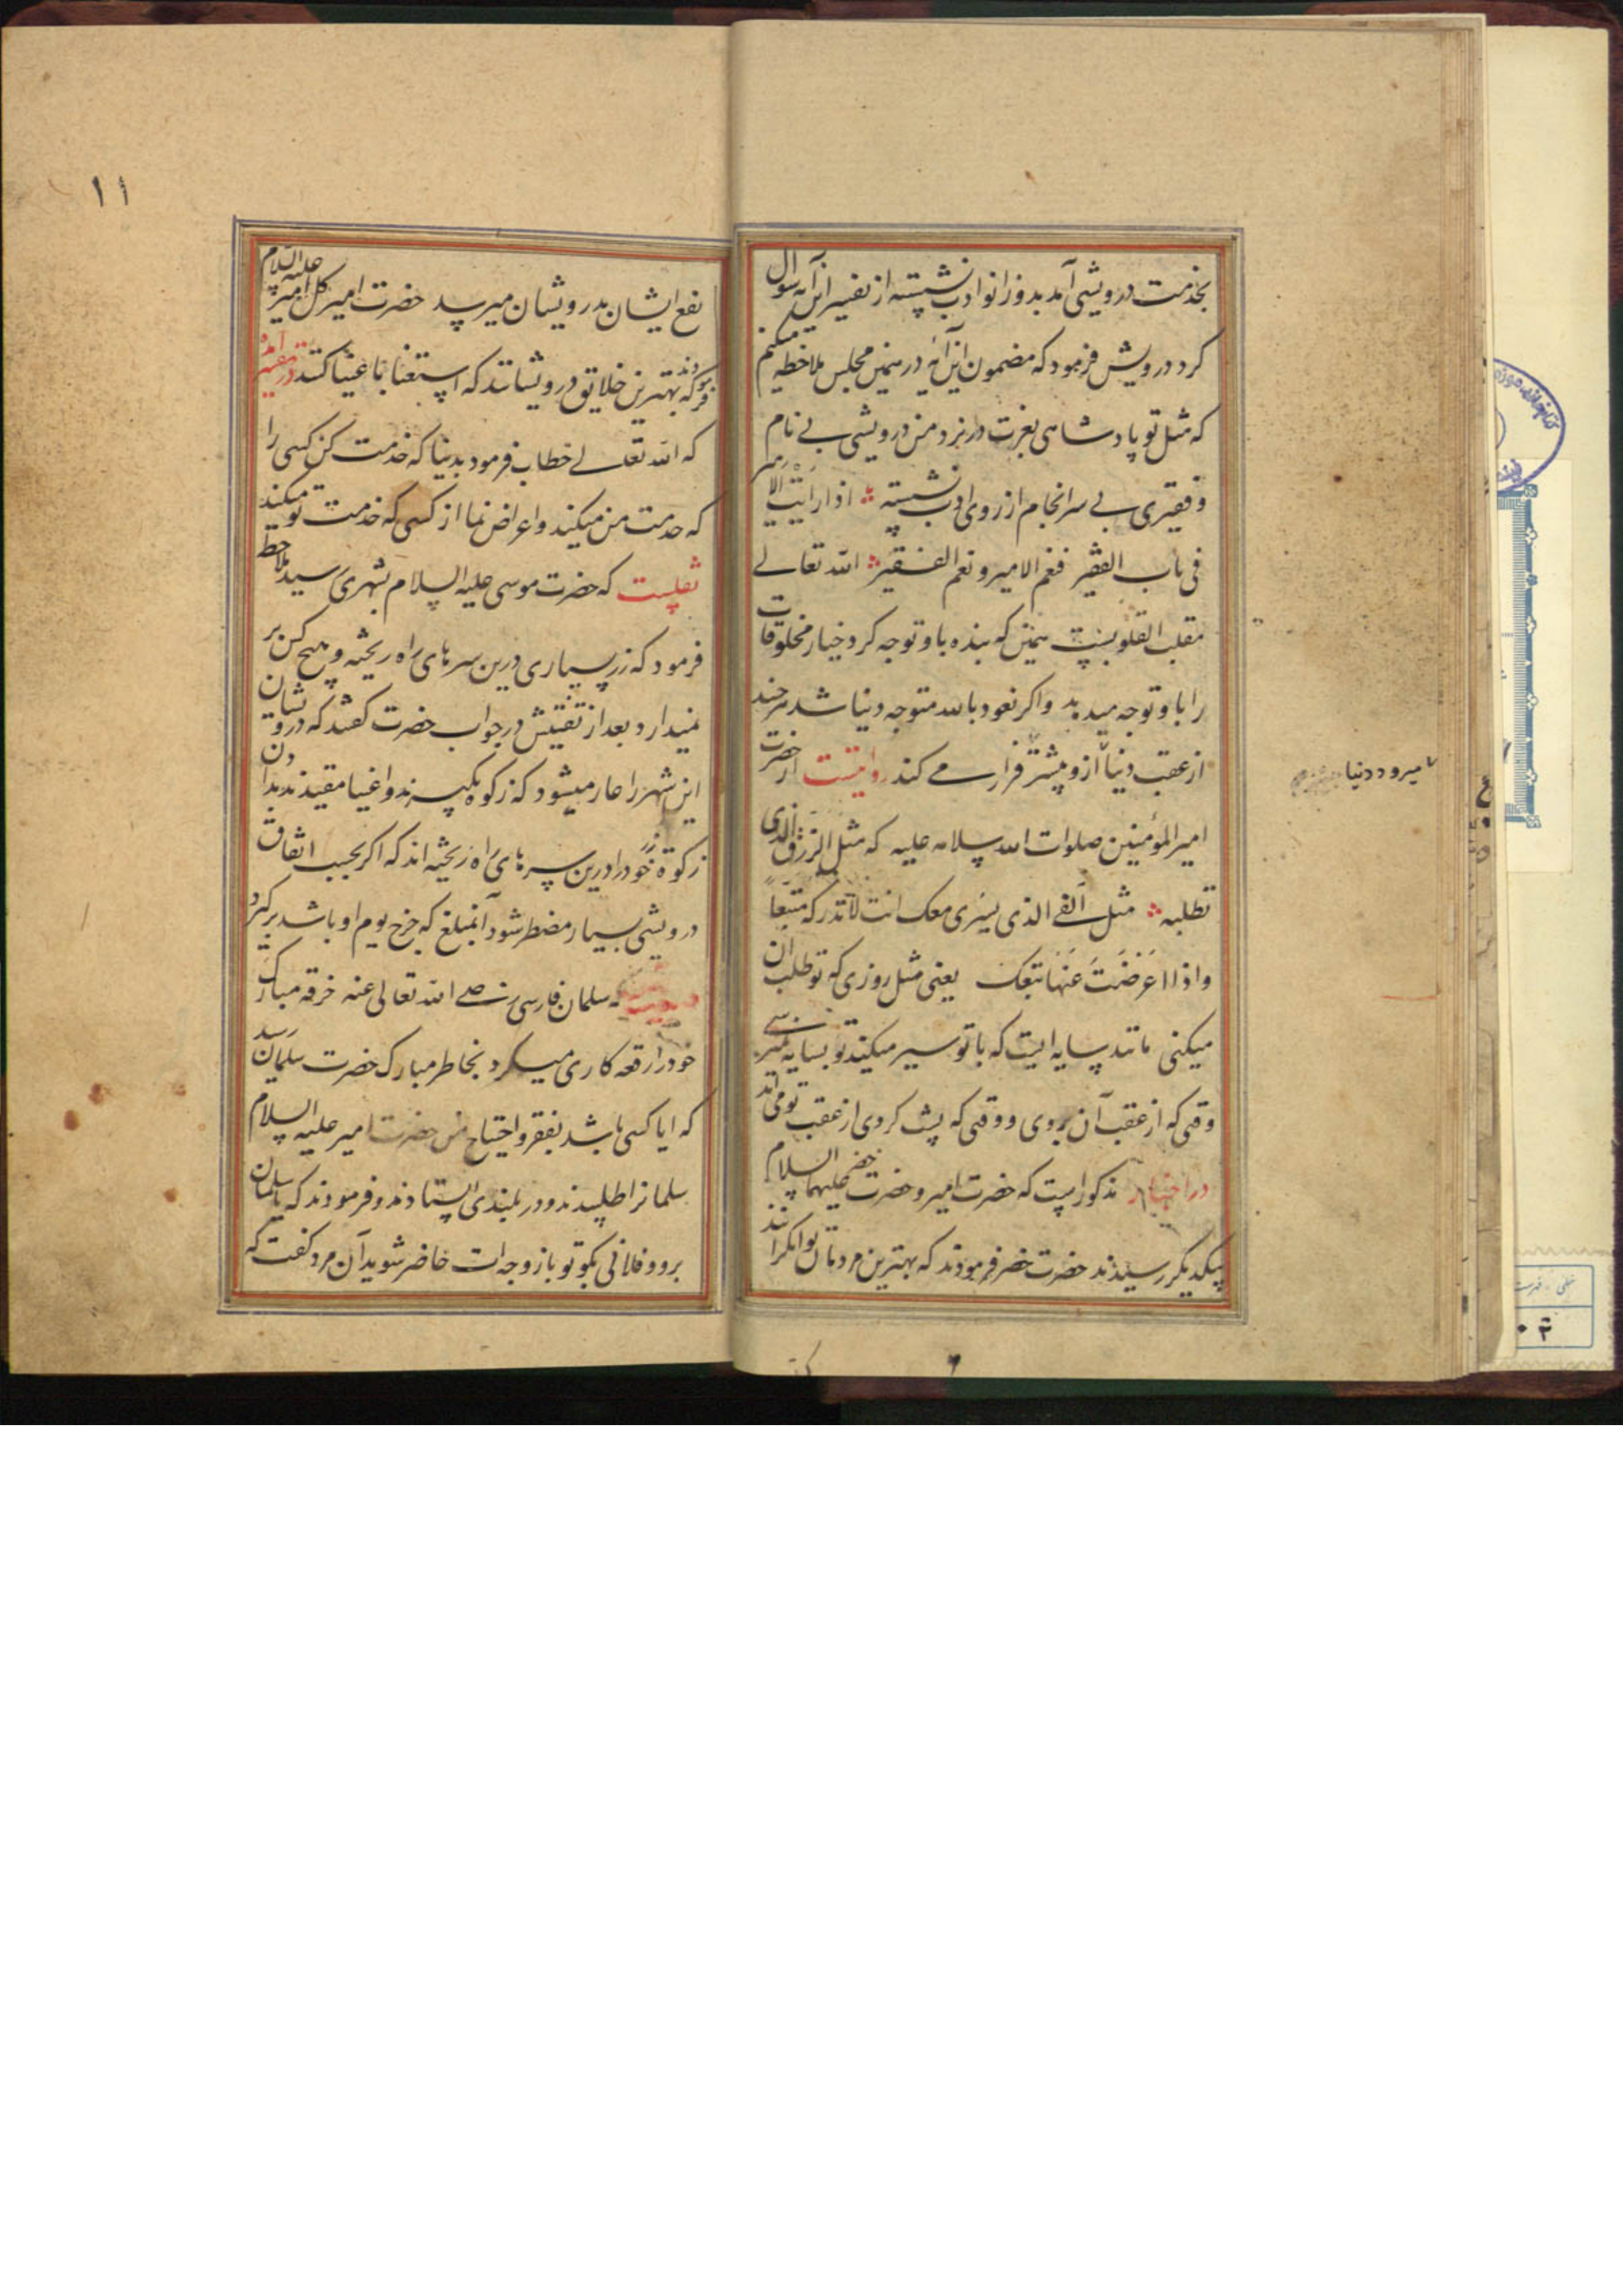 بخدمت درویشی آمد بدوزانو ادب نشسته از تفسیر این آیه سوال
کرد درویش فرمود که مضمون این آیه در همین مجلس ملاحظه میکنم
که مثل تو پادشاهی بعزت در نزد من درویشی بے نام
و فقیری بے سرانجام از روی ادب نشسته اذا رایت الامیر
فی باب الفقیر فنعم الامیر و نعم الفقیر الله تعالے
مقلب القلوبست همین که بنده باو توجه کرد خیار مخلوقات
را باو توجه میدهد و اکر نعوذ بالله متوجه دنیا شد هرچند
از عقب دنیا ازو پیشتر فرار مے کند روایتست از حضرت
امیر المؤمنین صلوات الله سلامه علیه که مثل الرزق الذی
تطلبه مثل الفے الذی یسری معک انت لا تدرکه متبعاً
و اذا اعرضت عنها تتبعک یعنی مثل روزی که تو طلب آن
میکنی مانند سایه ایست که با تو سیر میکند تو بسایه نمیرسے
وقتی که از عقب آن بروی و وقتی که پشت کردی از عقب تو می آید
در اخبار مذکور است که حضرت امیر و حضرت خضر علیهما السلام
بیکدیکر رسیدند حضرت خضر فرمودند که بهترین مردمان توانکرانند
میرود دنیا
۱۱
نفع ایشان بدرویشان میرسد حضرت امیر کل امیر علیه السلام
فرمودند که بهترین خلایق درویشانند که استغنا باغنیا کنند در تفسیر آمده
که الله تعالے خطاب فرمود بدنیا که خدمت کن کسی را
که خدمت من میکند و اعراض نما از کسی که خدمت تو میکند
نقلست که حضرت موسی علیه السلام بشهری رسید ملاحظه
فرمود که زر بسیاری درین سرهای راه ریخته و هیچ کس بر
نمیدارد بعد از تفتیش در جواب حضرت کفتند که درویشان
این شهر را عار میشود که زکوة بکیرند و اغنیا مقیدند بدادن
زکوة خود را درین سرهای راه ریخته اند که اکر بحسب اتفاق
درویشی بسیار مضطر شود آنمبلغ که خرج یوم او باشد برکیرد
که سلمان فارسی رضے الله تعالی عنه خرقه مبارک
خود را رقعه کاری میکرد بخاطر مبارک حضرت سلمان رسید
که ایا کسی باشد بفقر و احتیاج من حضرت امیر علیه السلام
سلمانرا طلبیدند و در بلندی ایستادند و فرمودند که یا سلمان
برو و فلانی بکو تو با زوجه ات حاضر شوید آن مرد کفت که